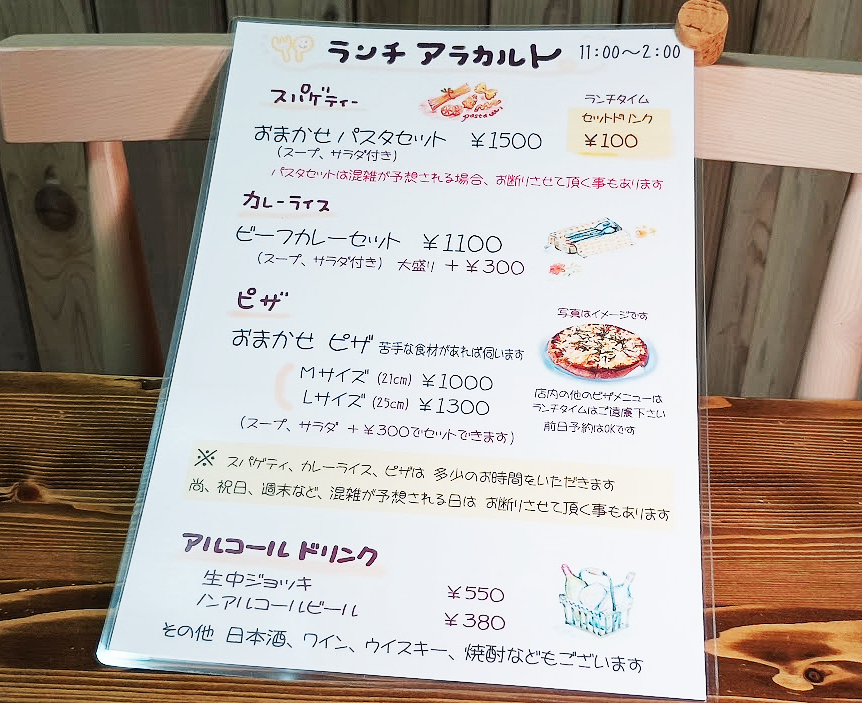 ランチ アラカルト 11:00～2:00
スパゲティー
pasta
ランチタイム
セットドリンク
¥100
おまかせ パスタセット ¥1500
(スープ、サラダ付き)
パスタセットは混雑が予想される場合、お断りさせて頂く事もあります
カレーライス
ビーフカレーセット ¥1100
(スープ、サラダ付き) 大盛り +¥300
ピザ
写真はイメージです
おまかせ ピザ 苦手な食材があれば伺います
Mサイズ (21cm) ¥1000
Lサイズ (25cm) ¥1300
(スープ、サラダ +¥300でセットできます)
店内の他のピザメニューは
ランチタイムはご遠慮下さい
前日予約はOKです
※ スパゲティ、カレーライス、ピザは 多少のお時間をいただきます
尚、祝日、週末など、混雑が予想される日は お断りさせて頂く事もあります
アルコール ドリンク
生中ジョッキ ¥550
ノンアルコールビール ¥380
その他 日本酒、ワイン、ウイスキー、焼酎などもございます